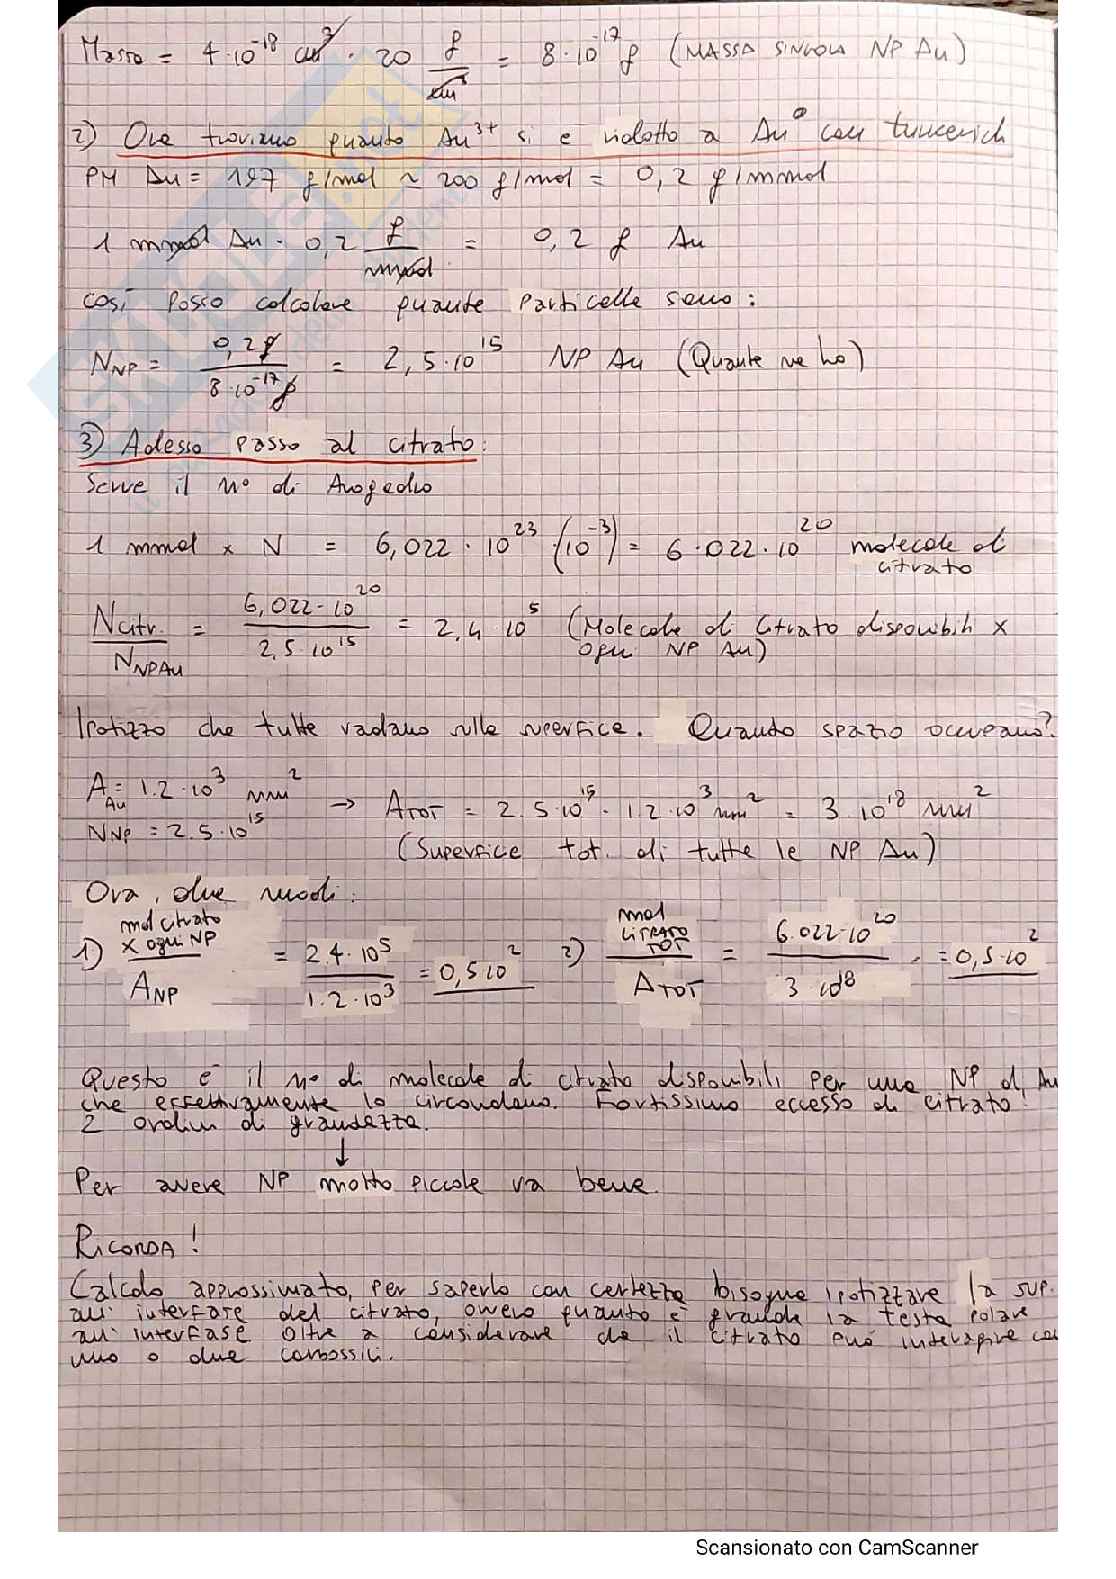 Massa = 4·10⁻¹⁸ cm³ · 20 g/cm³ = 8·10⁻¹⁷ g (MASSA SINGOLA NP Au)
2) Ora troviamo quanto Au³⁺ si è ridotto a Au⁰ con turkevich
PM Au = 197 g/mol ~ 200 g/mol = 0,2 g/mmol
1 mmol Au · 0,2 g/mmol = 0,2 g Au
così posso calcolare quante particelle sono:
N_NP = 0,2 g / 8·10⁻¹⁷ g = 2,5·10¹⁵ NP Au (Quante ne ho)
3) Adesso passo al citrato:
Serve il n° di Avogadro
1 mmol × N = 6,022·10²³·(10⁻³) = 6.022·10²⁰ molecole di citrato
N citr. / N NP Au = 6,022·10²⁰ / 2,5·10¹⁵ = 2,4·10⁵ (Molecole di Citrato disponibili × ogni NP Au)
Ipotizzo che tutte vadano sulla superfice. Quanto spazio occupano?
A Au = 1.2·10³ nm² → A TOT = 2.5·10¹⁵ · 1.2·10³ nm² = 3·10¹⁸ nm²
N NP = 2.5·10¹⁵ (Superfice tot. di tutte le NP Au)
Ora, due modi:
1) mol citrato × ogni NP / A NP = 2.4·10⁵ / 1.2·10³ = 0,5·10² 2) mol CITRATO TOT / A TOT = 6.022·10²⁰ / 3·10¹⁸ = 0,5·10²
Questo è il n° di molecole di citrato disponibili per una NP di Au
che effettivamente lo circondano. Fortissimo eccesso di citrato!
2 ordini di grandezza.
↓
Per avere NP molto piccole va bene.
RICORDA!
Calcolo approssimato, per saperlo con certezza bisogna ipotizzare la sup.
all'interfase del citrato, ovvero quanto è grande la testa polare
all'interfase oltre a considerare che il citrato può interagire con
uno o due carbossili.
Scansionato con CamScanner